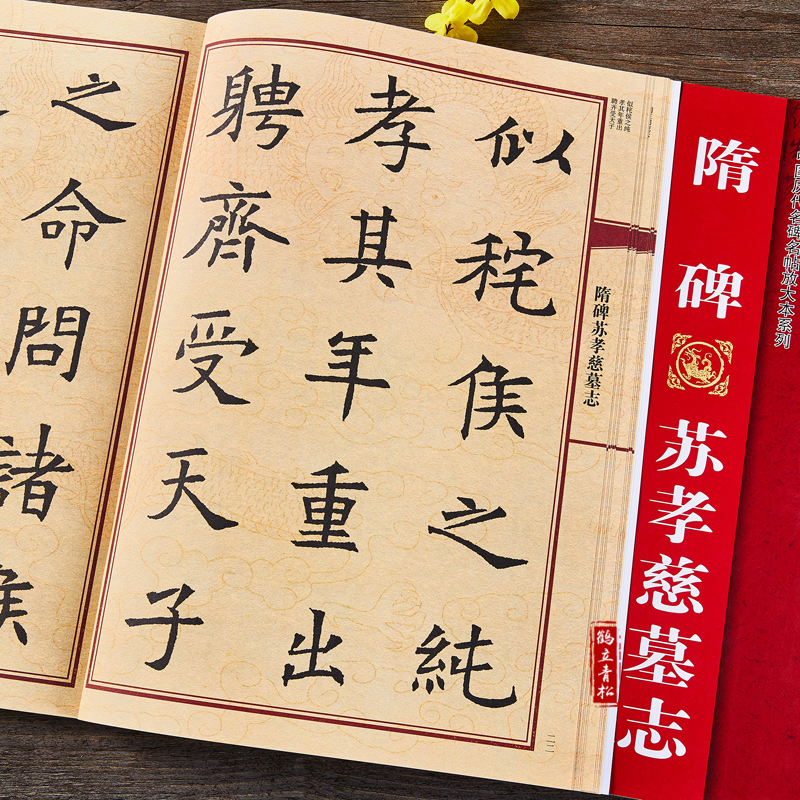 中国历代名碑名帖放大本系列
隋碑
苏孝慈墓志
隋碑苏孝慈墓志
似秺侯之纯
孝其年重出
聘齐受天子
似秺侯之純
孝其年重出
聘齊受天子
之命問諸侯
鹤立青松